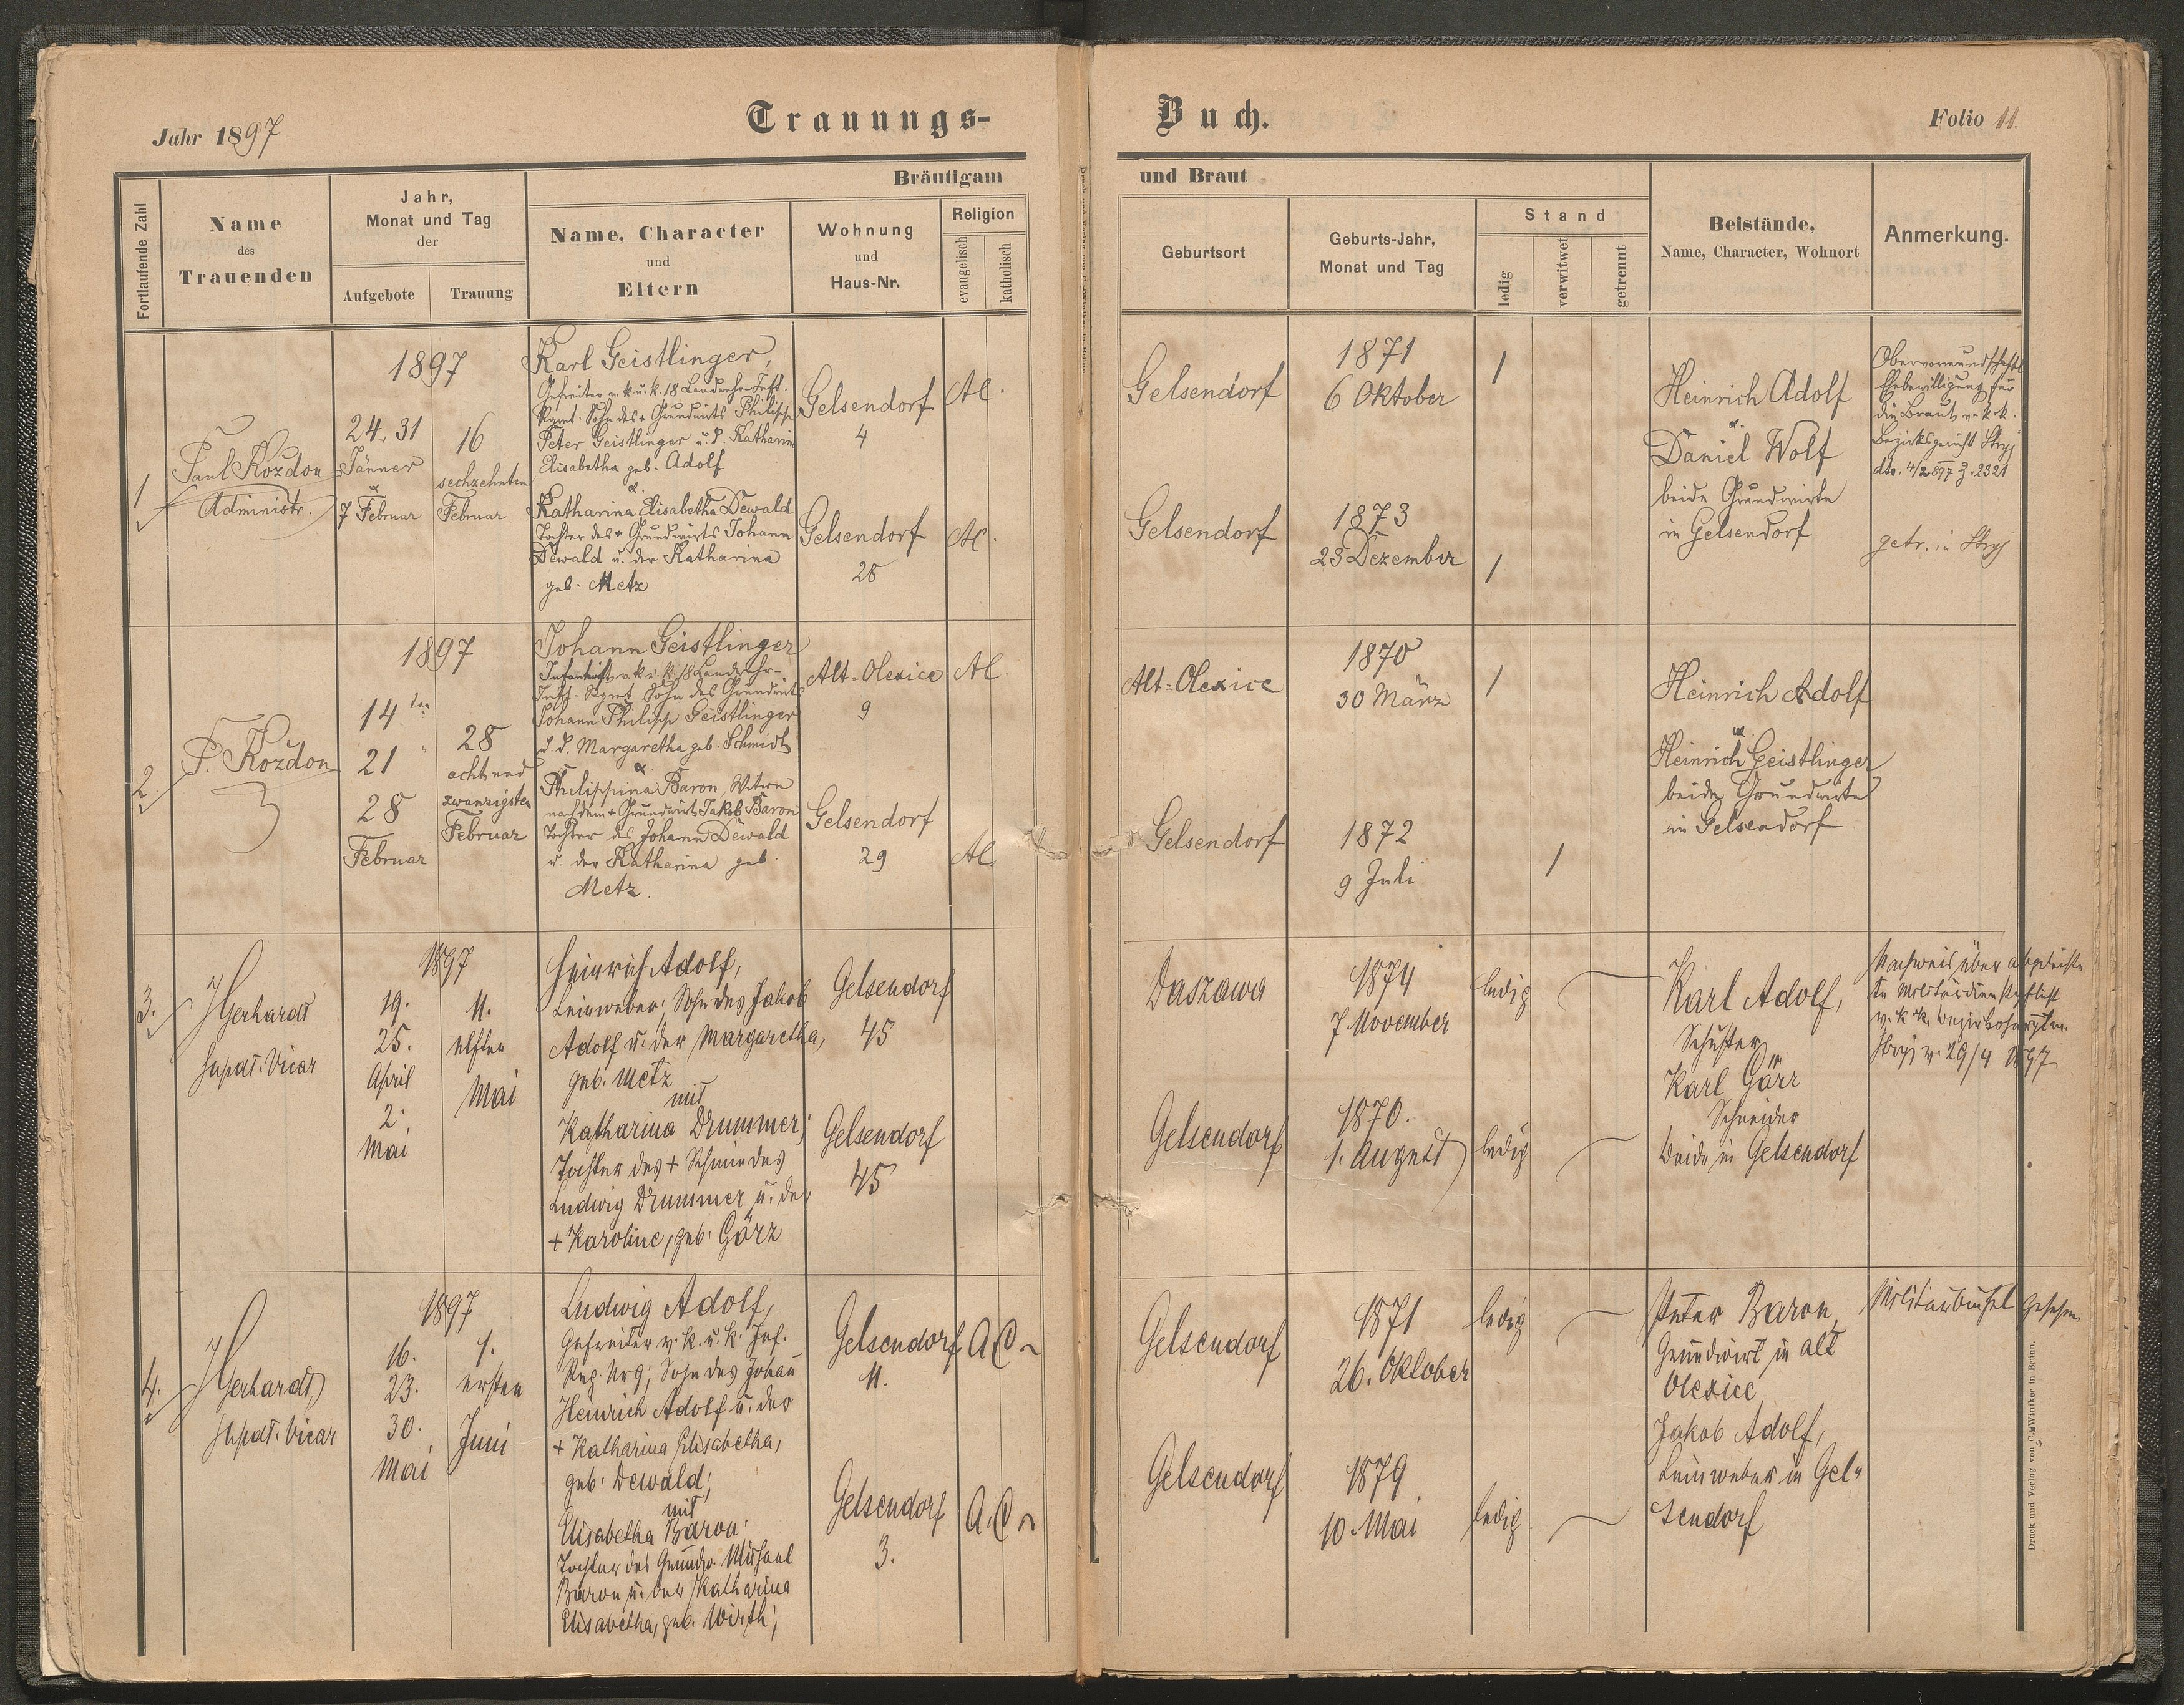 Jahr 1897
Trauungs-
Fortlaufende Zahl
Name
des
Trauenden
Jahr,
Monat und Tag
der
Aufgebote
Trauung
Bräutigam
Name, Character
und
Eltern
Wohnung
und
Haus-Nr.
Religion
evangelisch
katholisch
1
Paul Kozdon
Administr.
1897
24, 31
Jänner
u.
7 Februar
16
sechzehnten
Februar
Karl Geistlinger,
Gefreiter v. k. u. k. 18 Landwehr-Inft.
Rgmt. Sohn des + Grundwirts Philipp
Peter Geistlinger u. d. Katharina
Elisabetha geb. Adolf
u.
Katharina Elisabetha Dewald
Tochter des + Grundwirts Johann
Dewald u. der Katharina
geb. Metz
Gelsendorf
4
Gelsendorf
28
AC.
AC.
2.
P. Kozdon
1897
14ten
21 "
28
Februar
28
acht und
zwanzigsten
Februar
Johann Geistlinger
Infanterist v. k. u. k. 18 Landwehr-
Inft. Rgmt Sohn des Grundwirts
Johann Philipp Geistlinger
u. d. Margaretha geb. Schmidt
u.
Philippina Baron, Witwe
nach dem + Grundwirt Jakob Baron
Tochter des Johann Dewald
u. der Katharina geb.
Metz.
Alt-Olexice
9
Gelsendorf
29
AC.
AC
3.
Gerhardt
Supdt. Vicar
1897
19.
25.
April
2.
Mai
11.
elften
Mai
Heinrich Adolf,
Leinweber; Sohn des Jakob
Adolf u. der Margaretha,
geb. Metz
mit
Katharina Drummer;
Tochter des + Schmiedes
Ludwig Drummer u. der
+ Karoline, geb. Görz
Gelsendorf
45
Gelsendorf
45
4.
Gerhardt
Supdt. Vicar
1897
16.
23.
30.
Mai
1.
ersten
Juni
Ludwig Adolf,
Gefreiter v. k. u. k. Inf.
Reg. Nr 9; Sohn des Johan
Heinrich Adolf u. der
+ Katharina Elisabetha,
geb. Dewald;
mit
Elisabetha Baron;
Tochter des Grundw. Michael
Baron u. der Katharina
Elisabetha, geb. Wirth;
Gelsendorf
11.
Gelsendorf
3.
A.C.
A.C.
Buch.
Folio 11.
und Braut
Geburtsort
Geburts-Jahr,
Monat und Tag
Stand
ledig
verwitwet
getrennt
Beistände,
Name, Character, Wohnort
Anmerkung.
Gelsendorf
1871
6 Oktober
1
Gelsendorf
1873
23 Dezember
1
Heinrich Adolf
u.
Daniel Wolf
beide Grundwirte
in Gelsendorf
Obervormundschaftl.
Ehebewilligung für
die Braut v. k. k.
Bezirksgericht Stryj
dto. 4/2 897 Z. 2321
getr. in Stryj
Alt-Olexice
1870
30 März
1
Gelsendorf
1872
9 Juli
1
Heinrich Adolf
u.
Heinrich Geistlinger
beide Grundwirte
in Gelsendorf
Daszawa
1874
7 November
ledig
Gelsendorf
1870.
1. August
ledig
Karl Adolf,
Schuster
Karl Görz
Schneider
beide in Gelsendorf
Nachweis über abgeleiste-
te Militärdienstpflicht
v. k. k.
Stryj v. 29/4 1897
Gelsendorf
1871
26. Oktober
ledig
Gelsendorf
1879
10. Mai
ledig
Peter Baron,
Grundwirt in alt
Olexice
Jakob Adolf,
Leinweber in Gel-
sendorf
Gesehen.
Druck und Verlag von C. Winiker in Brünn.